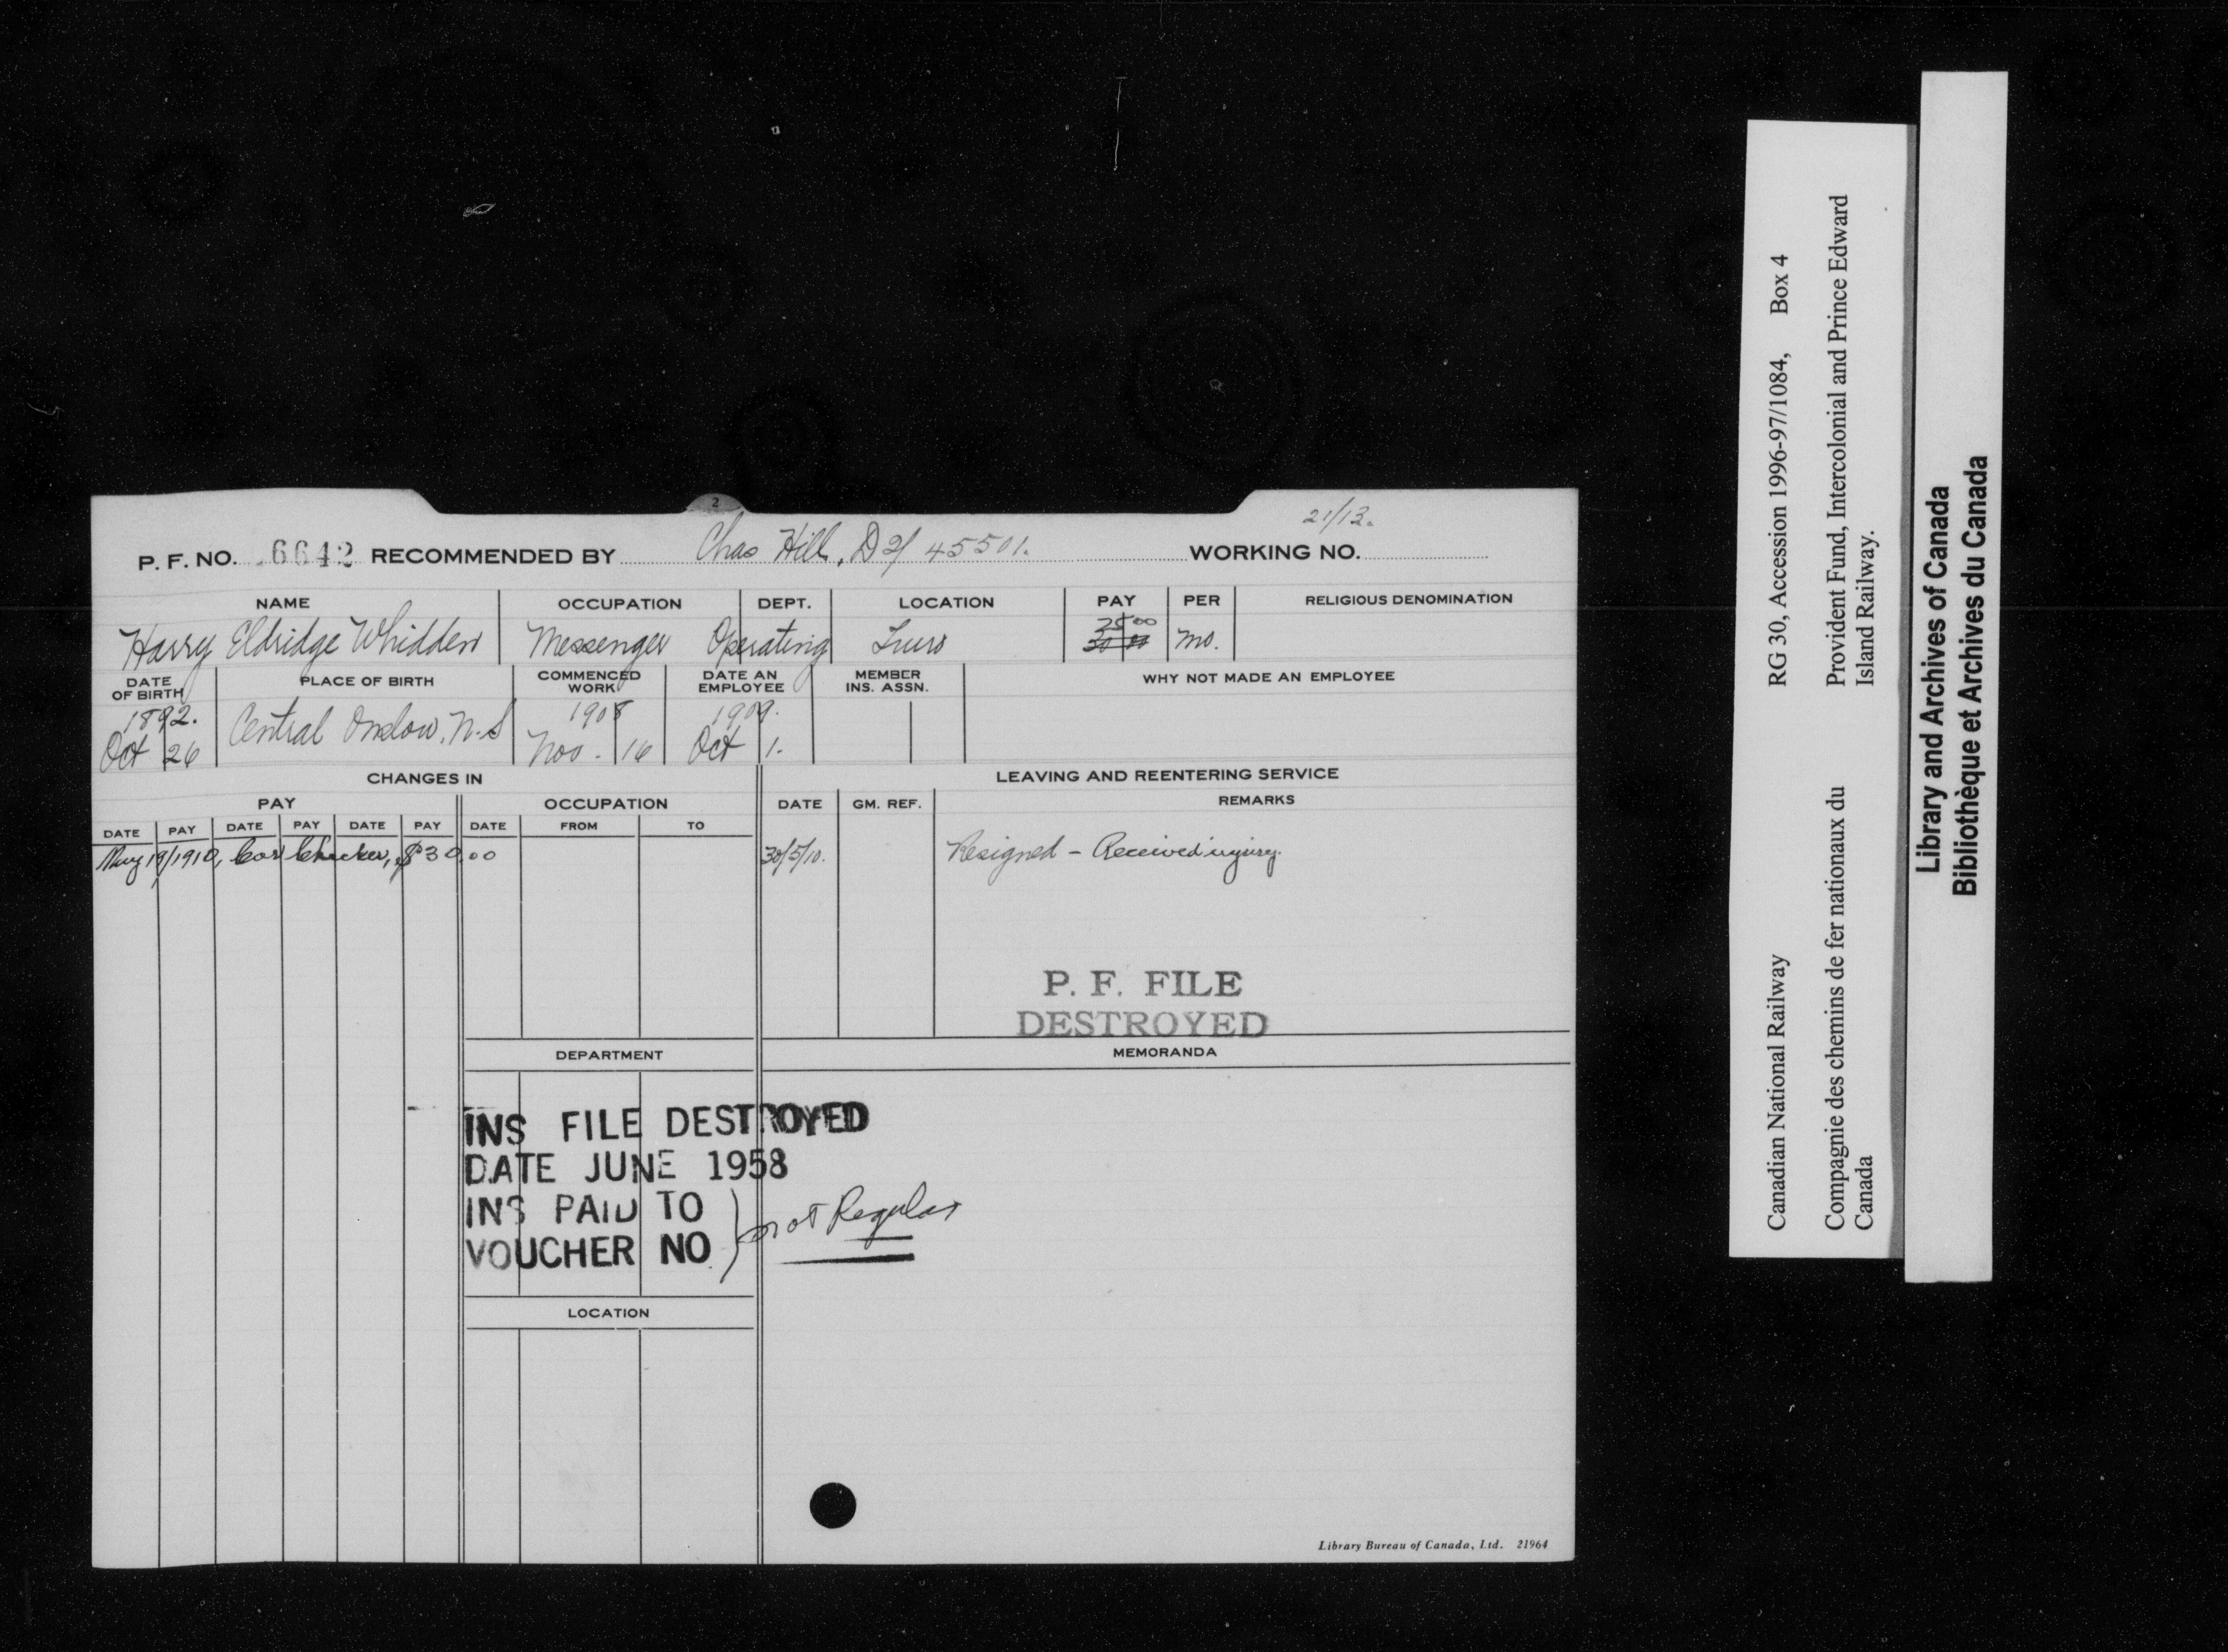 2
21/13.
P. F. NO. 6642 RECOMMENDED BY Chas Hill, D 2/ 45501. WORKING NO.
NAME OCCUPATION DEPT. LOCATION PAY PER RELIGIOUS DENOMINATION
25 00
Harry Eldridge Whidden Messenger Operating Truro 30 00 mo.
DATE OF BIRTH PLACE OF BIRTH COMMENCED WORK DATE AN EMPLOYEE MEMBER INS. ASSN. WHY NOT MADE AN EMPLOYEE
1892. 1908 1909.
Oct 26 Central Onslow, N.S Nov. 16 Oct 1.
CHANGES IN LEAVING AND REENTERING SERVICE
PAY OCCUPATION DATE GM. REF. REMARKS
DATE PAY DATE PAY DATE PAY DATE FROM TO
May 19/1910, Car Checker, $30.00 30/5/10. Resigned - Received injury.
P. F. FILE
DESTROYED
DEPARTMENT MEMORANDA
INS FILE DESTROYED
DATE JUNE 1958
INS PAID TO
VOUCHER NO. } not Regular
LOCATION
Library Bureau of Canada, Ltd. 21964
Canadian National Railway RG 30, Accession 1996-97/1084, Box 4
Compagnie des chemins de fer nationaux du Canada
Provident Fund, Intercolonial and Prince Edward Island Railway.
Library and Archives of Canada
Bibliothèque et Archives du Canada